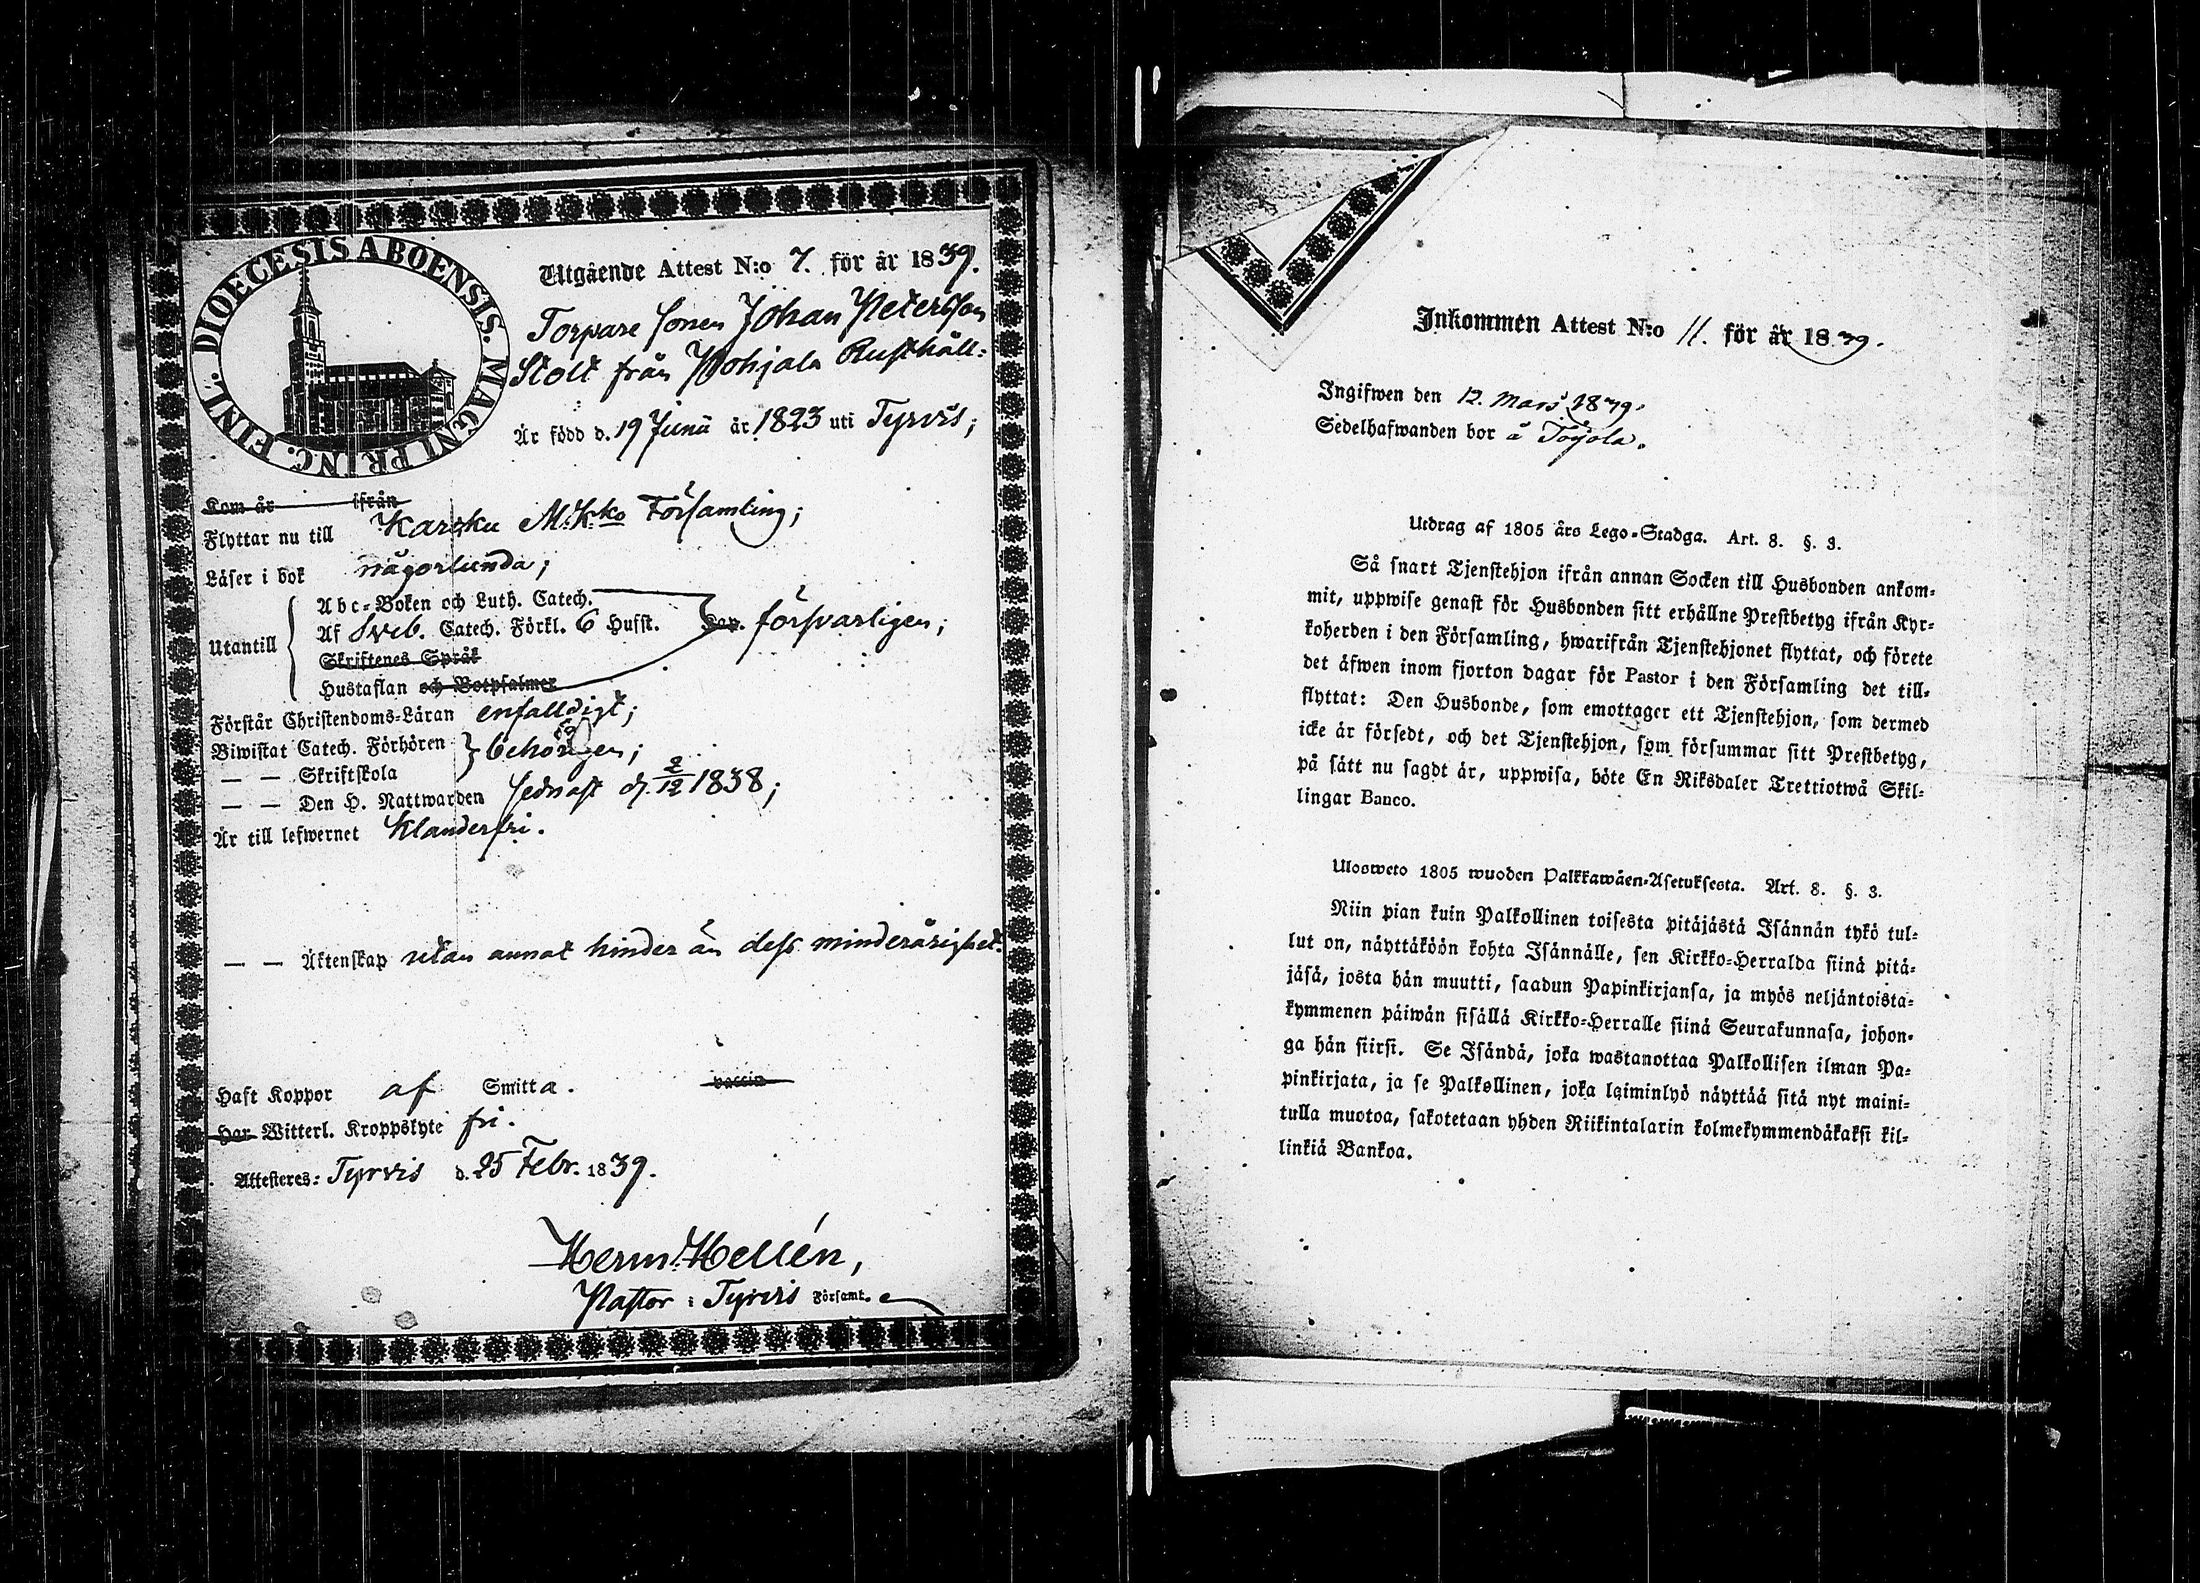 DIOECESIS ABOENSIS. MAGNI PRINC. FINL.
Utgående Attest N:o 7. för år 1839.
Torpare sonen Johan Petersson
Stolt från Pohjala Rusthåll:
Är född d. 19 Junii år 1823 uti Tyrvis;
Kom år ifrån
Flyttar nu till Karcku M.K:ko Församling;
Läser i bok någorlunda;
Abc-Boken och Luth. Catech.
Utantill Af Sveb. Catech. Förkl. 6 Hufst. kap. försvarligen;
Skriftenes Språk
Hustaflan och Botpsalmer
Förstår Christendoms-Läran enfalldigt;
Biwistat Catech. Förhören behörigen;
— — Skriftskola
— — Den H. Nattwarden sednast d. 2/12 1838;
Är till lefwernet klanderfri.
— — Äktenskap utan annat hinder än dess minderårighet.
Haft Koppor af Smitta. vaccin
Har Witterl. Kroppslyte fri.
Attesteres: Tyrvis d. 25 Febr. 1839.
Herm. Hellén,
Pastor i Tyrvis Församl.
Inkommen Attest N:o 11. för år 1839.
Ingifwen den 12. Mars 1839.
Sedelhafwanden bor å Töyola.
Utdrag af 1805 års Lego-Stadga. Art. 8. §. 3.
Så snart Tjenstehjon ifrån annan Socken till Husbonden ankom-
mit, uppwise genast för Husbonden sitt erhållne Prestbetyg ifrån Kyr-
koherden i den Församling, hwarifrån Tjenstehjonet flyttat, och förete
det äfwen inom fjorton dagar för Pastor i den Församling det till-
flyttat: Den Husbonde, som emottager ett Tjenstehjon, som dermed
icke är försedt, och det Tjenstehjon, som försummar sitt Prestbetyg,
på sätt nu sagdt är, uppwisa, böte En Riksdaler Trettiotwå Skil-
lingar Banco.
Ulosweto 1805 wuoden Palkkawäen-Asetuksesta. Art. 8. §. 3.
Niin pian kuin Palkollinen toisesta pitäjästä Isännän tykö tul-
lut on, näyttäköön kohta Isännälle, sen Kirkko-Herralda siinä pitä-
jäsä, josta hän muutti, saadun Papinkirjansa, ja myös neljäntoista-
kymmenen päiwän sisällä Kirkko-Herralle siinä Seurakunnasa, johon-
ga hän siirsi. Se Isändä, joka wastanottaa Palkollisen ilman Pa-
pinkirjata, ja se Palkollinen, joka laiminlyö näyttää sitä nyt maini-
tulla muotoa, sakotetaan yhden Riikintalarin kolmekymmendäkaksi kil-
linkiä Bankoa.